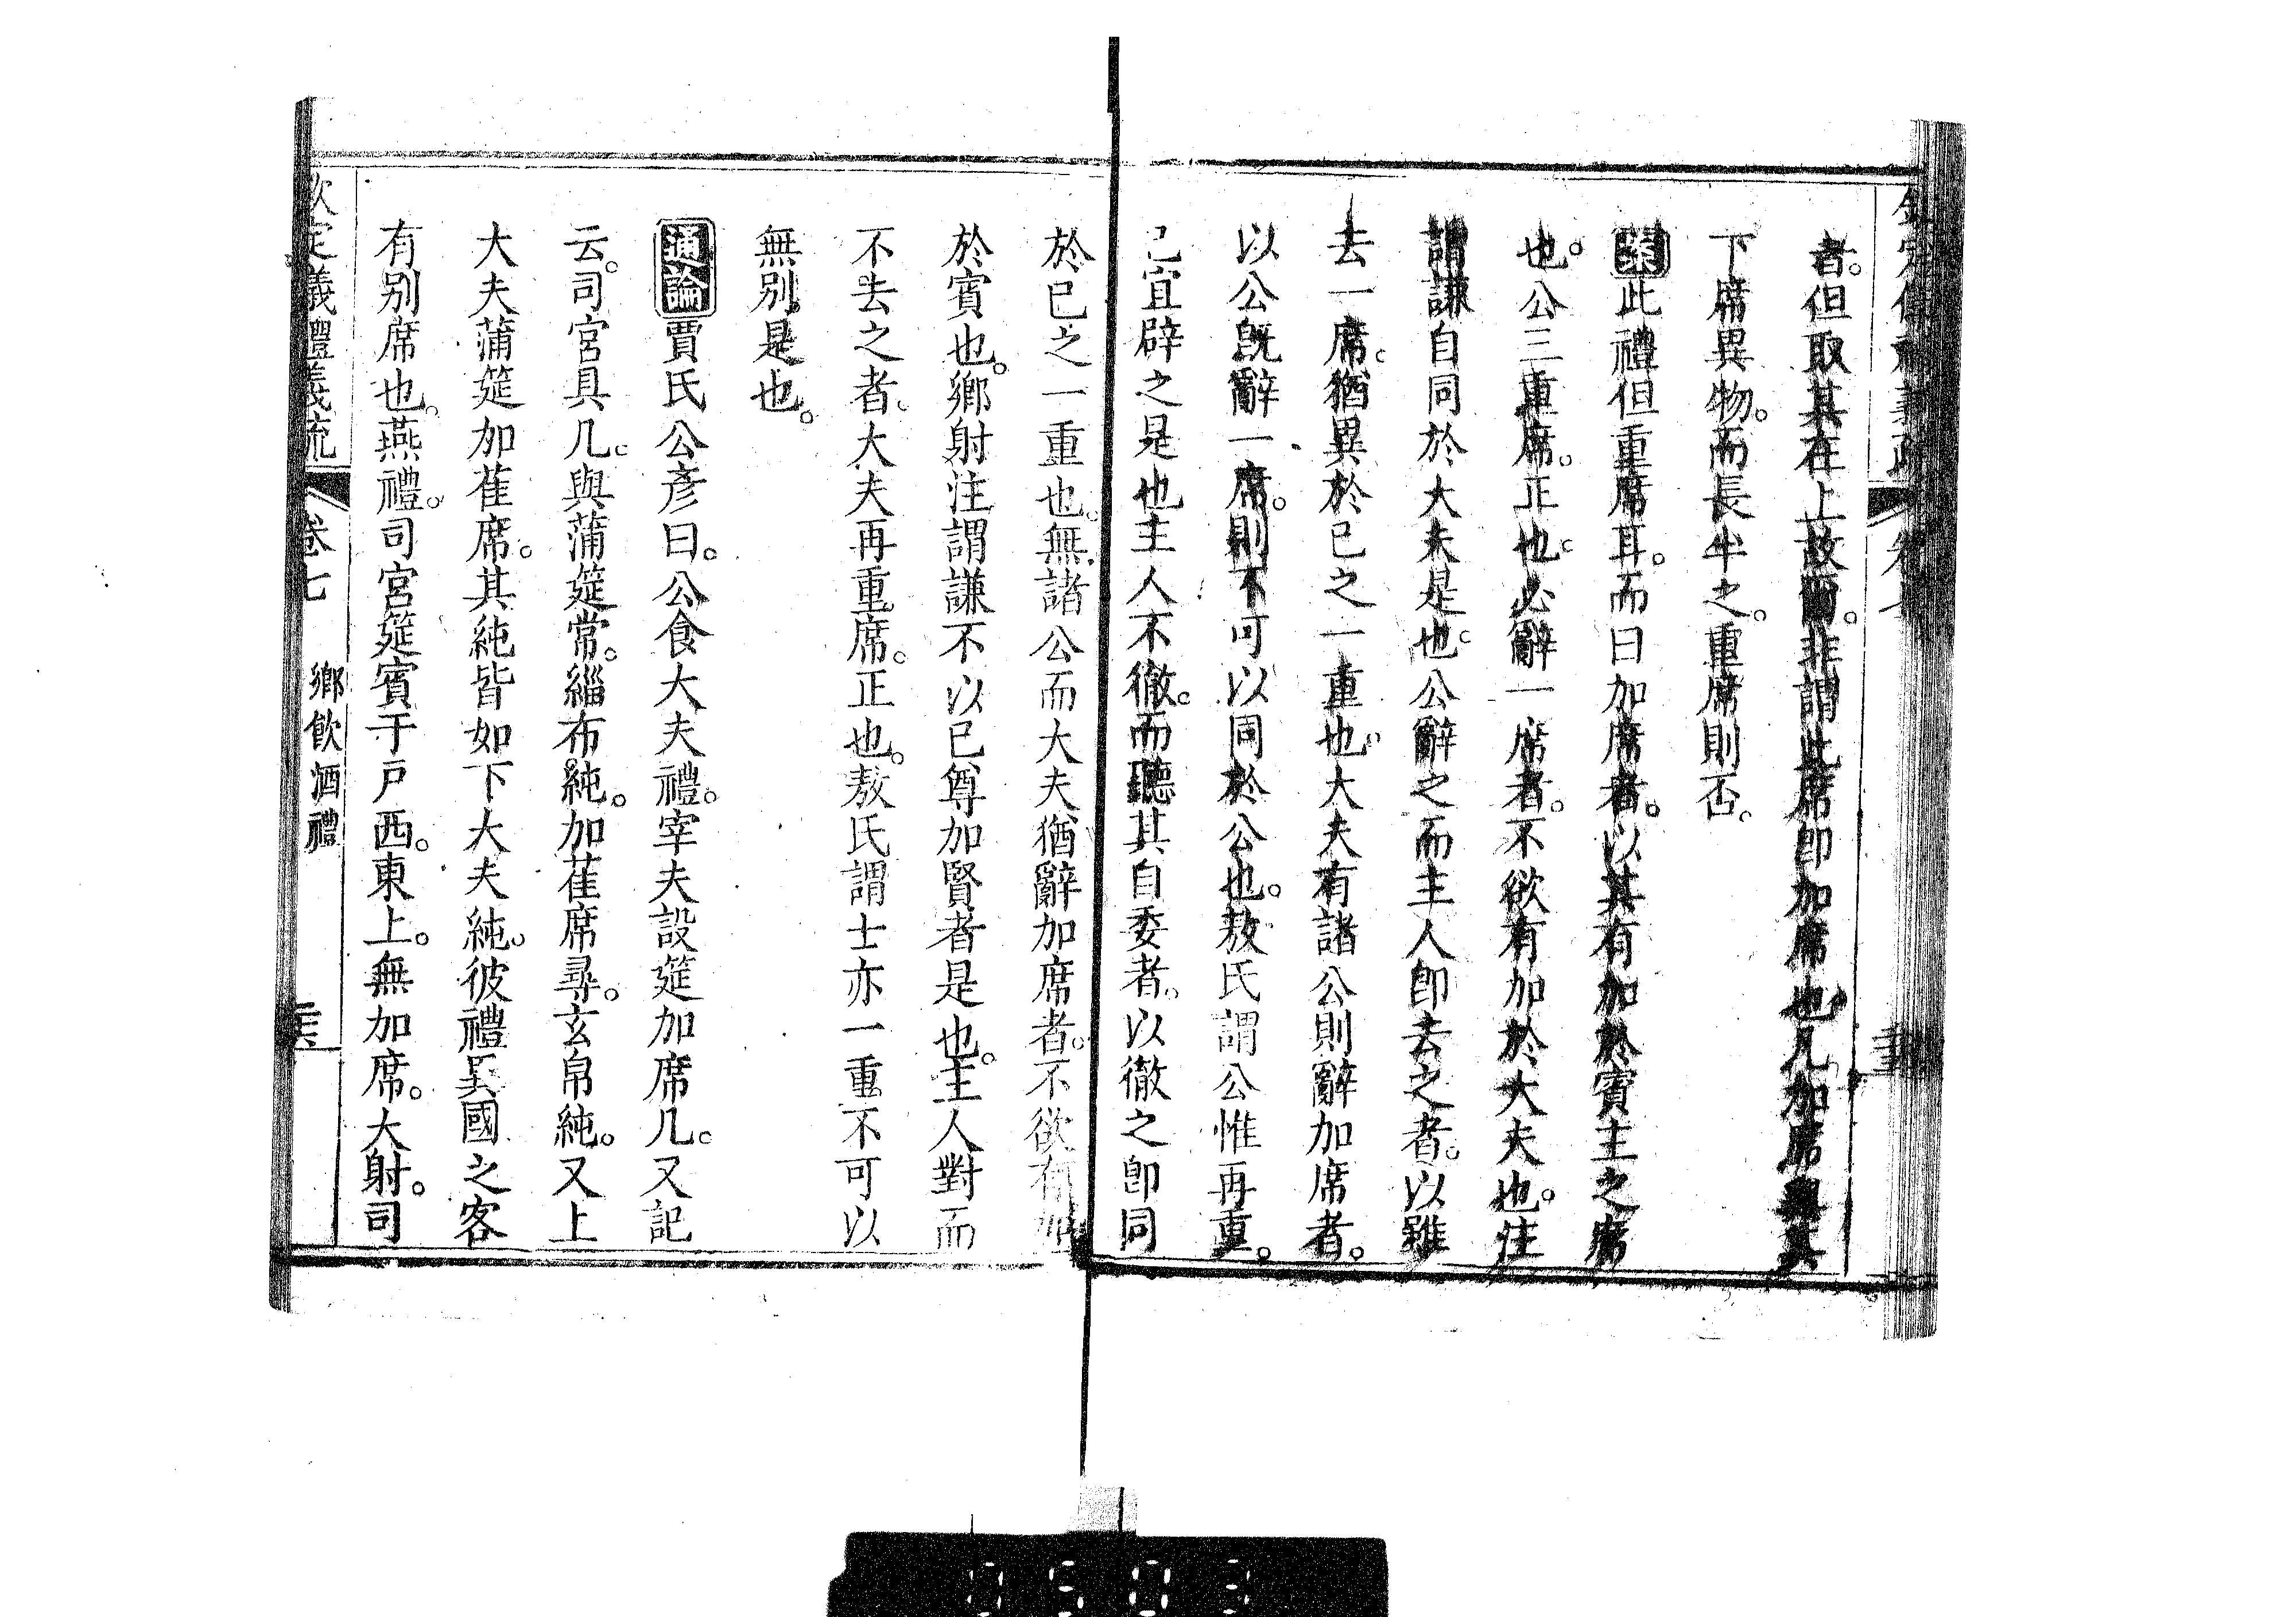 者。但取其在上故爾。非謂此席卽加席也凡加席與其
下席異物。而長半之。重席則否。
案此禮但重席耳。而曰加席者。以其有加於賓主之席
也。公三重席。正也。必辭一席者。不欲有加於大夫也。注
謂謙自同於大夫是也。公辭之而主人卽去之者。以雖
去一席。猶異於已之一重也。大夫有諸公則辭加席者。
以公旣辭一席。則不可以同於公也。敖氏謂公惟再重。
已宜辟之是也主人不徹。而聽其自委者。以徹之卽同
於已之一重也。無諸公而大夫猶辭加席者。不欲有加
於賓也。鄉射注謂謙不以已尊加賢者是也。主人對而
不去之者。大夫再重席。正也。敖氏謂士亦一重不可以
無別。是也。
通論賈氏公彥曰。公食大夫禮。宰夫設筵加席几。又記
云。司宮具几。與蒲筵常。緇布純。加萑席尋。玄帛純。又上
大夫蒲筵加萑席。其純皆如下大夫純。彼禮異國之客
有別席也。燕禮。司宮筵賓于戶西。東上。無加席。大射。司
欽定儀禮義疏 卷七 鄉飲酒禮